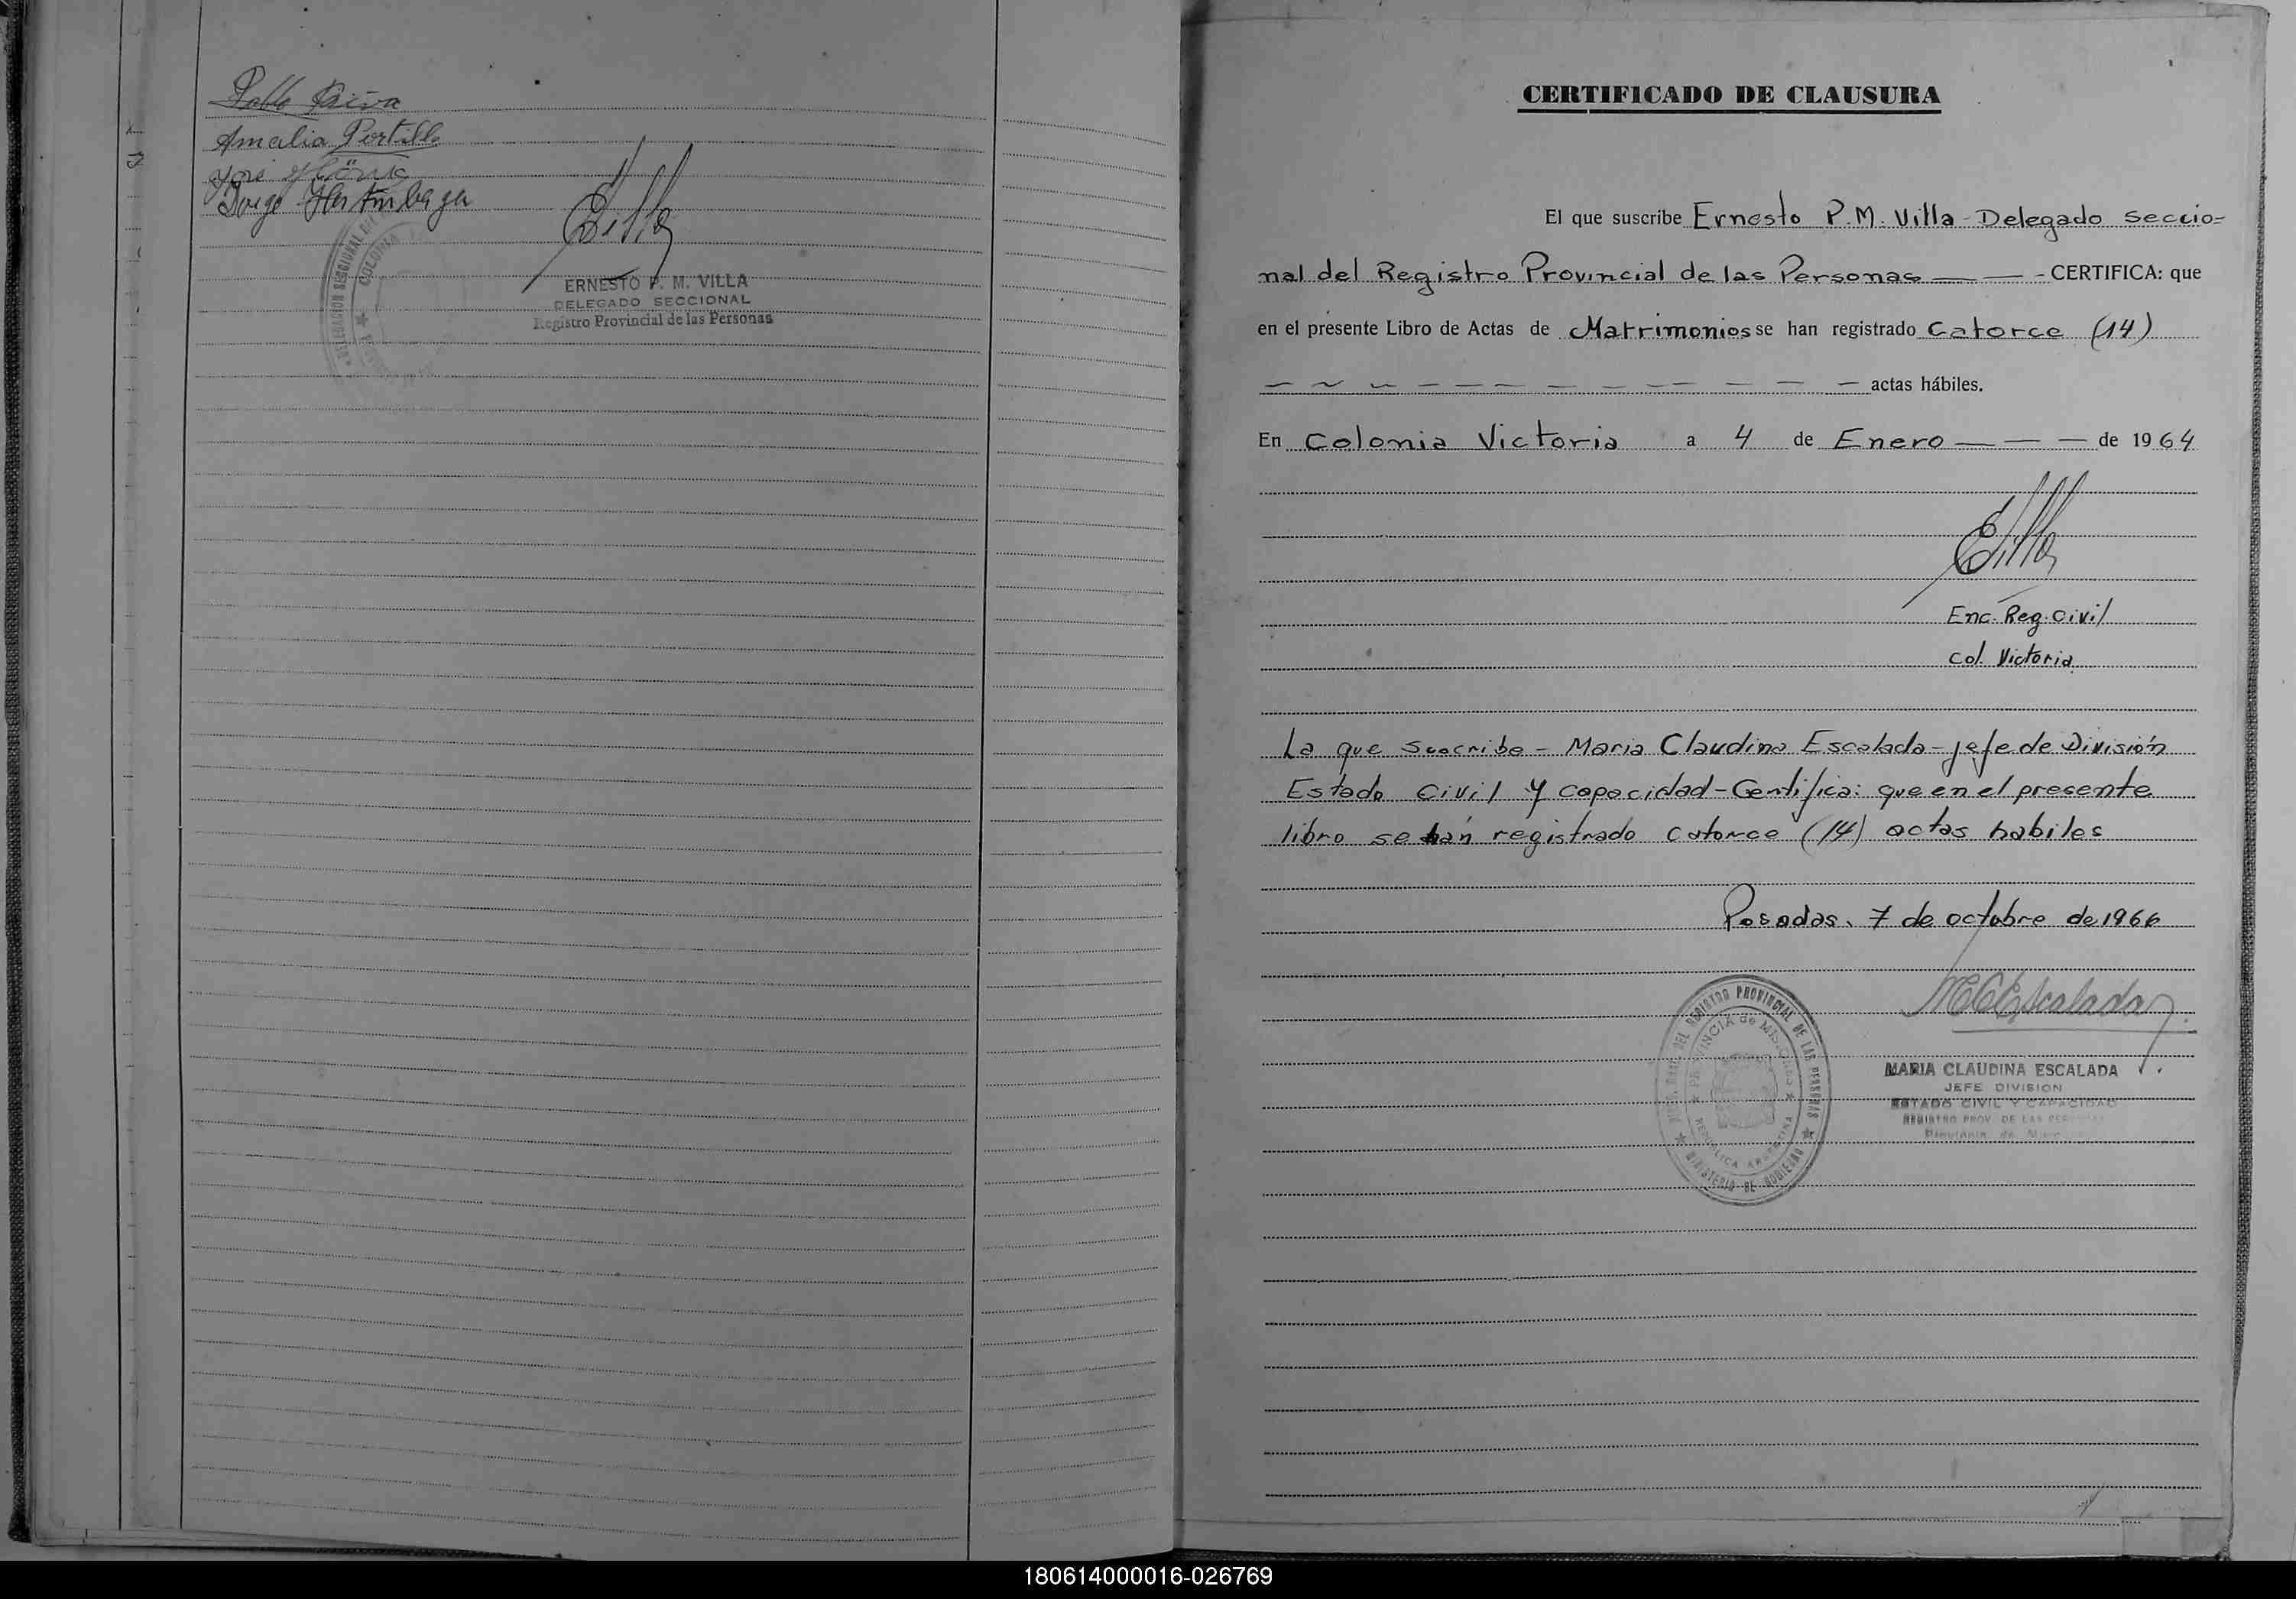 Pablo Paiva
Amalia Portillo
José
Jorge
ERNESTO P. M. VILLA
DELEGADO SECCIONAL
Registro Provincial de las Personas
CERTIFICADO DE CLAUSURA
El que suscribe Ernesto P.M. Villa - Delegado Seccio=
nal del Registro Provincial de las Personas — — - CERTIFICA: que
en el presente Libro de Actas de Matrimonios se han registrado Catorce (14)
actas hábiles.
En Colonia Victoria a 4 de Enero — — — de 1964
Villa
Enc. Reg. Civil
Col. Victoria
La que suscribe - Maria Claudina Escalada - jefe de División
Estado Civil y Capacidad - Certifica: que en el presente
libro se han registrado catorce (14) actas habiles
Posadas, 7 de octubre de 1966
MCEscalada
MARIA CLAUDINA ESCALADA
JEFE DIVISION
ESTADO CIVIL Y CAPACIDAD
REGISTRO PROV. DE LAS
DEL REGISTRO PROVINCIAL DE LAS PERSONAS
PROVINCIA de MISIONES
REPUBLICA ARGENTINA
MINISTERIO DE GOBIERNO
180614000016-026769